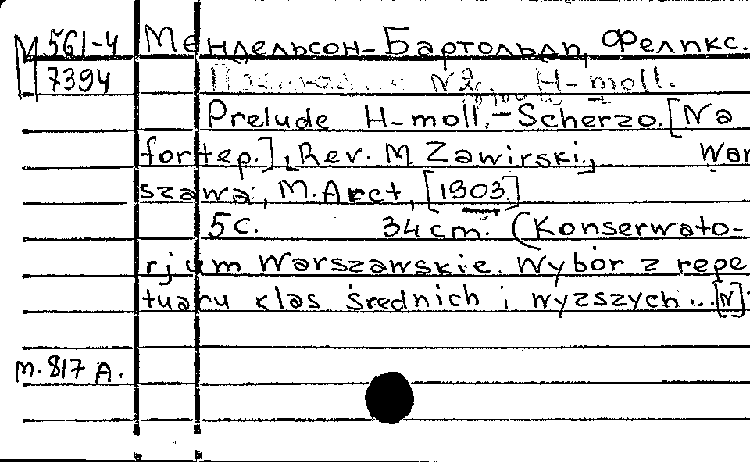 М 561-4 Мендельсон-Бартольди, Феликс.
7394 N2 H-moll.
Prelude H-moll.-Scherzo. [Na
fortep.], Rev. M Zawirski, War
szawa, M. Arct, [1903.]
5 c. 34 cm. (Konserwato-
rjum Warszawskie. Wybór z repe
tuaru klas średnich i wyzszych...[N]
M. 817 A.